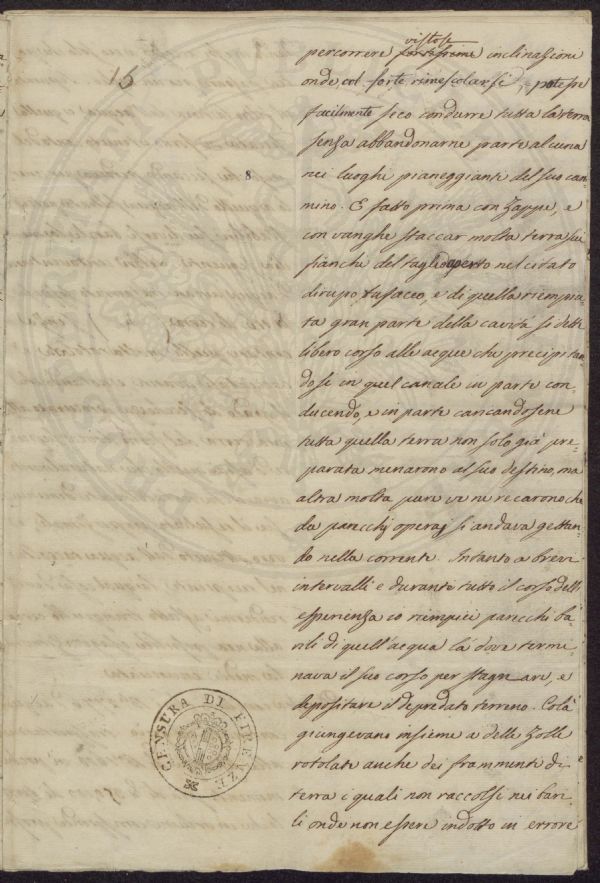 15
8
vistose
percorrere fortissime inclinazione
onde col forte rimescolarsi, potesse
facilmente seco condurre tutta la terra
senza abbandonarne parte alcuna
nei luoghi pianeggianti del suo cam-
mino. E fatto prima con Zappe, e
con vanghe staccar molta terra sui
fianchi del taglio aperto nel citato
dirupo tufaceo, e di quella riempiu-
ta gran parte della cavità si dette
libero corso alle acque che precipitan-
dosi in quel canale in parte con-
ducendo, e in parte caricandosene
tutta quella terra non solo già pre-
parata menarono al suo destino, ma
altra molta pure ve ne recarono che
da parecchj operaj si andava gettan-
do nella corrente. Intanto a brevi
intervalli e durante tutto il corso dell'
esperienza io riempiei parecchi ba-
rili di quell'acqua là dove termi-
nava il suo corso per stagnare, e
depositare il depredato terreno. Colà
giungevano insieme a delle Zolle
rotolate anche dei frammenti di
terra i quali non raccolsi nei bari-
li onde non essere indotto in errore
CENSURA DI FIRENZE